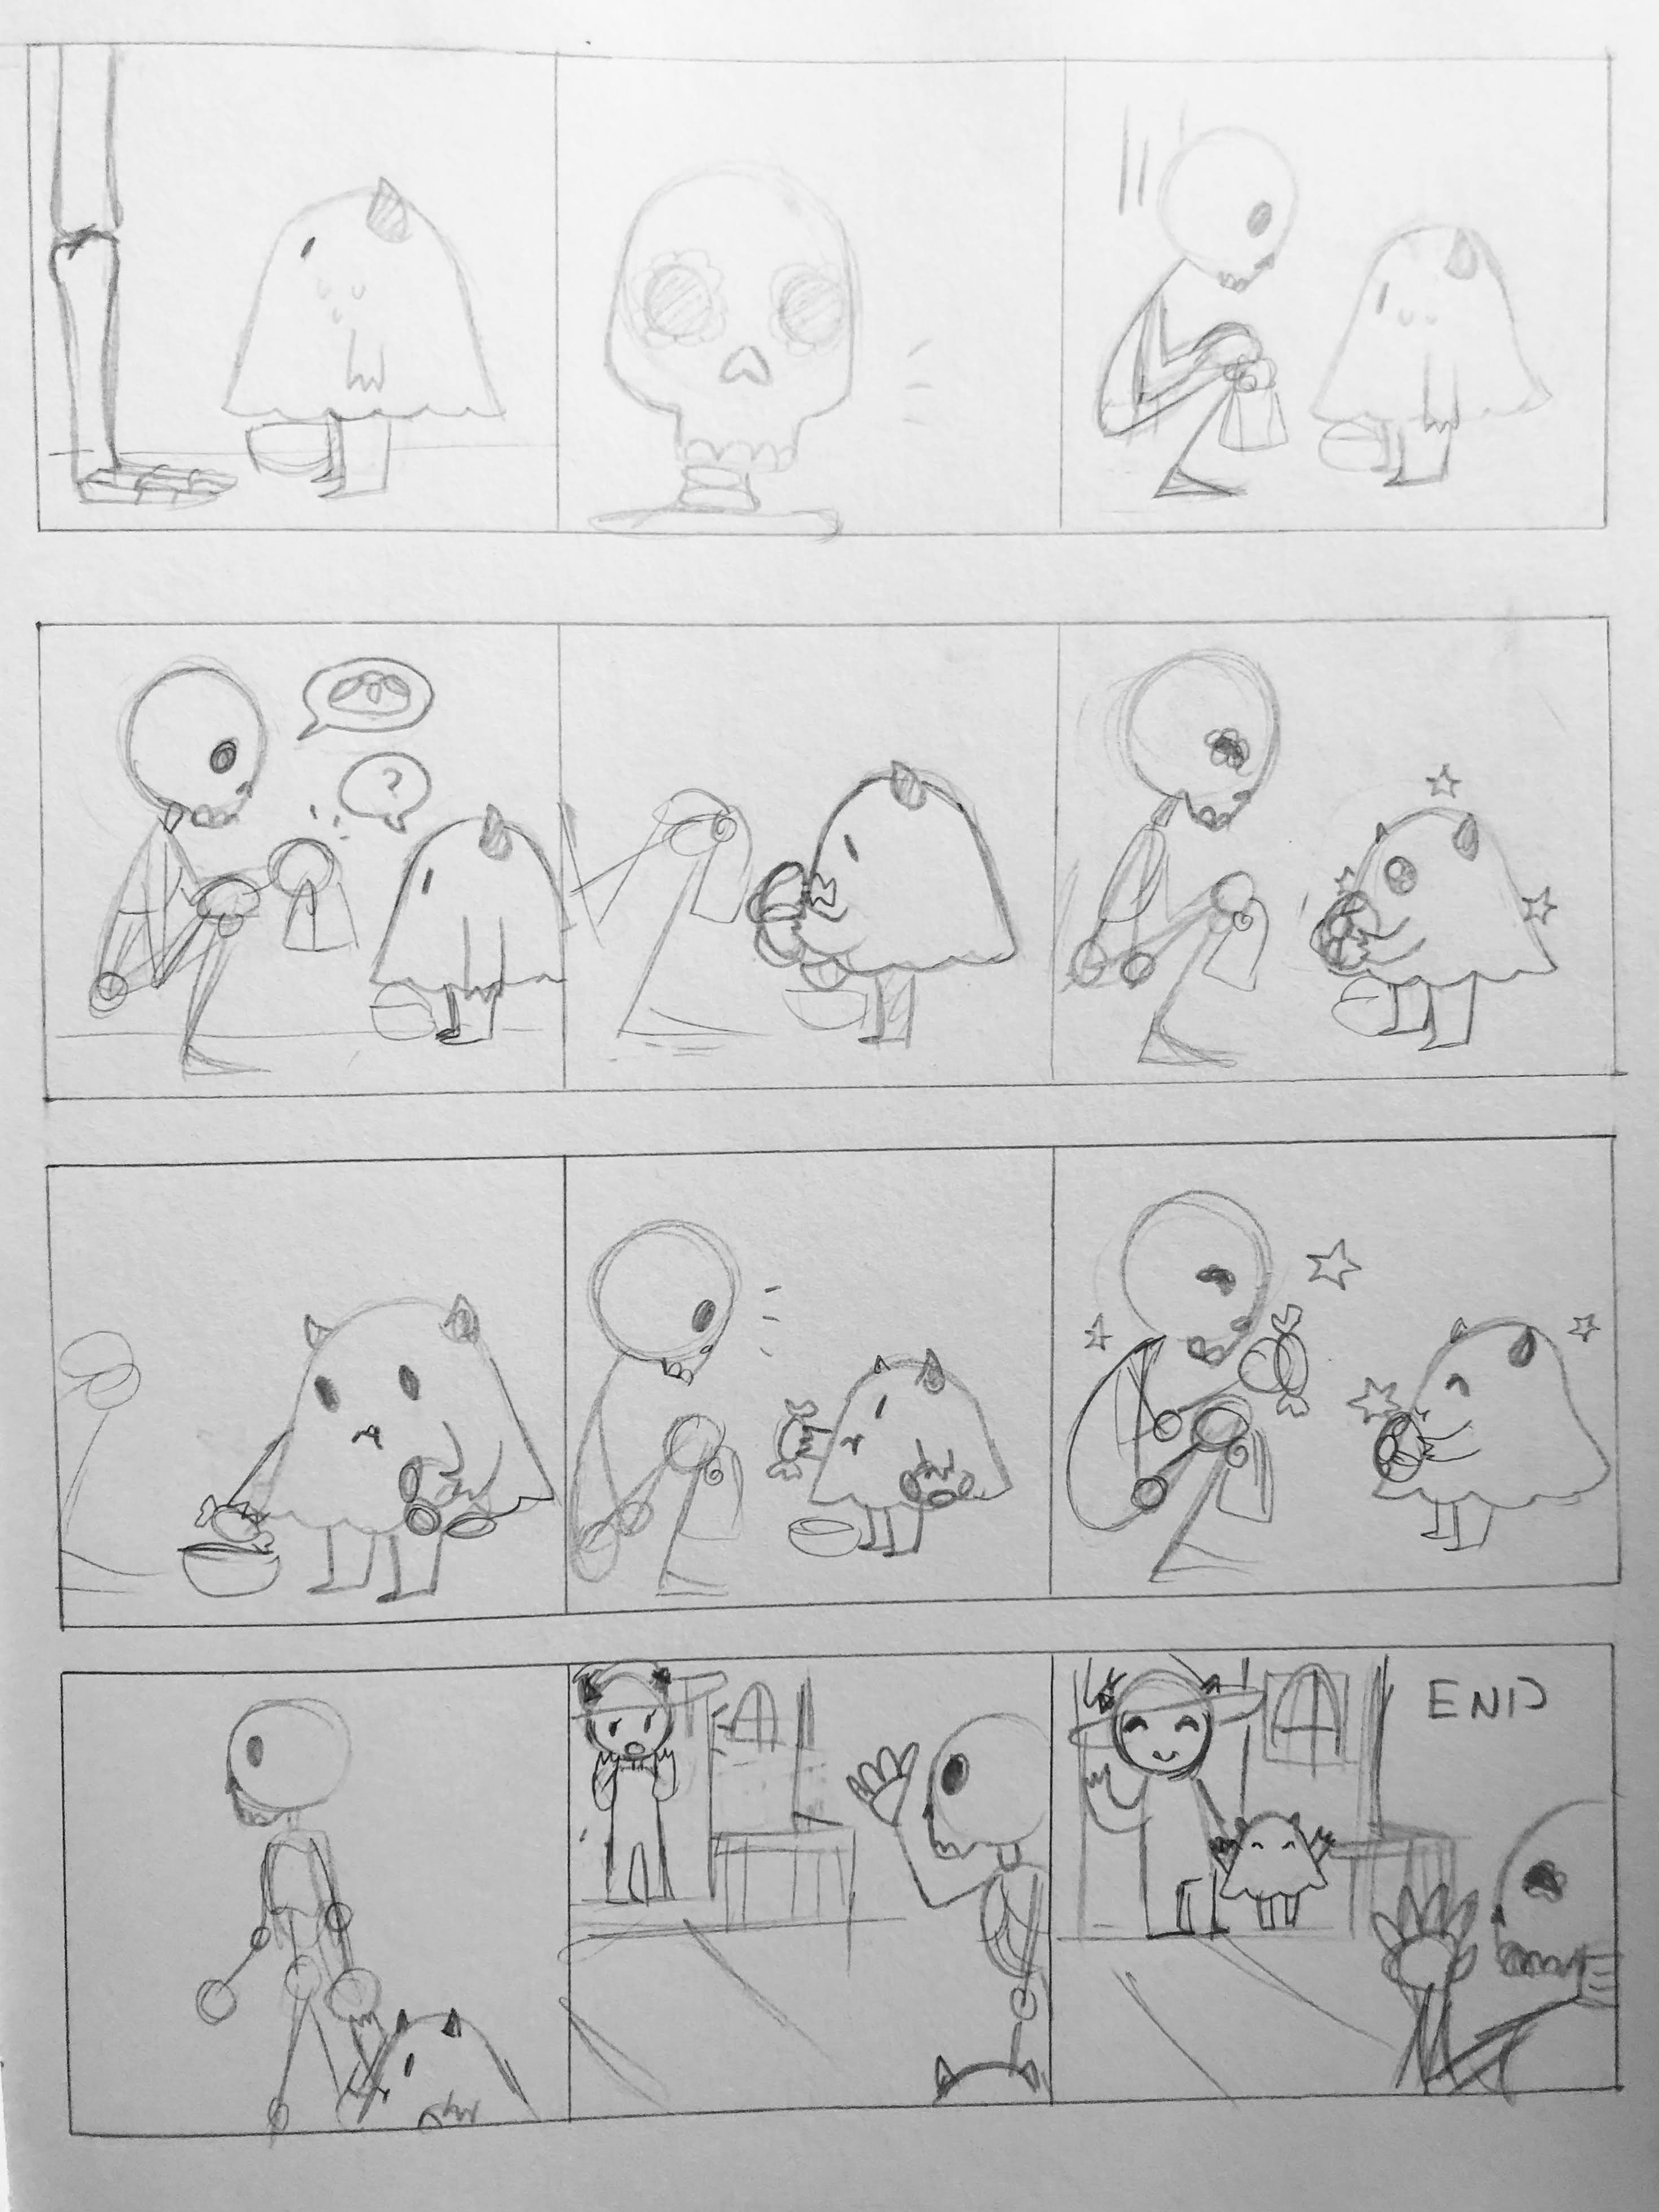 ?
END